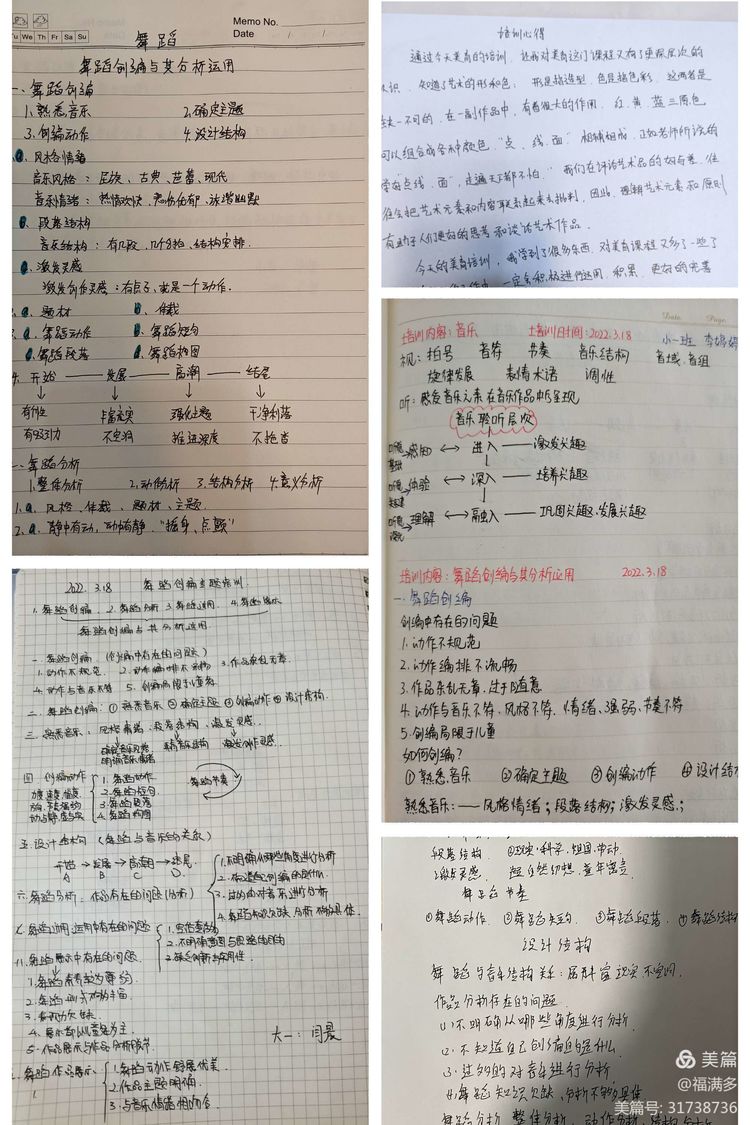 Memo No.
Date / /
Tu We Th Fr Sa Su
舞蹈
舞蹈创编与其分析运用
一、舞蹈创编
1.熟悉音乐 2.确定主题
3.创编动作 4.设计结构
a.风格情绪
音乐风格：民族、古典、芭蕾、现代
音乐情绪：热情欢快、诙谐幽默
b.段落结构
音乐结构：有几段、几个八拍、结构安排.
c.激发灵感
激发创作灵感：有点子、就是一个动作.
2.a.题材 b.体裁
3.a.舞蹈动作 b.舞蹈短句
c.舞蹈段落 d.舞蹈构图
4.开始 —— 发展 —— 高潮 —— 结尾
有个性 丰富充实 强化主题 干净利落
有吸引力 不空洞 推进深度 不拖沓
二、舞蹈分析
1.整体分析 2.动作分析 3.结构分析 4.意义分析
1.a.风格、体裁、题材、主题.
2.a.静中有动，动中有静.
培训心得
通过今天美育的培训，让我对美育这门课程又有了更深层次的
认识，知道了艺术的形和色：形是指造型，色是指色彩，这两者是
缺一不可的，在一副作品中，有着很大的作用，红、黄、蓝三原色
可以组合成各种颜色，"点、线、面"相辅相成，正如老师所说的
学好点线面，"走遍天下都不怕。"我们在评论艺术品的好与差，往
往会把艺术元素和内容联系起来去批判，因此，理解艺术元素和原则
有助于人们更好的思考和谈论艺术作品.
今天的美育培训，我学到了很多东西，对美育课程又多了一些了
一定会积极进行运用，积累，更好的完善
Date. Page.
培训内容：音乐 培训日时间：2022.3.18 小一班
视：拍号 音符 节奏 音乐结构 音域、音组
旋律发展 表情术语 调性
听：感受音乐元素在音乐作品中的呈现
音乐聆听层次
感知 ⟷ 进入 —— 激发兴趣
体验 ⟷ 深入 —— 培养兴趣
理解 ⟷ 融入 —— 巩固兴趣、发展兴趣
培训内容：舞蹈创编与其分析应用 2022.3.18
一.舞蹈创编
创编中存在的问题
1.动作不规范
2.动作编排不流畅
3.作品杂乱无章，过于随意
4.动作与音乐不符、风格不符、情绪、强弱、节奏不符
5.创编局限于儿童
如何创编？
①熟悉音乐 ②确定主题 ③创编动作 ④设计结
熟悉音乐：—— 风格情绪；段落结构；激发灵感；
2022.3.18 舞蹈创编主题培训
1.舞蹈创编 2.舞蹈分析 3.舞蹈运用 4.舞蹈展示
舞蹈创编与其分析运用
一.舞蹈创编（创编中存在的问题）
1.动作不规范 2.动作编排不流畅 3.作品杂乱无章.
4.动作与音乐不符 5.创编局限于儿童
二.舞蹈创编：①熟悉音乐 ②确定主题 ③创编动作 ④设计结构.
三.熟悉音乐：风格情绪，段落结构，激发灵感.
四 创编动作
1.舞蹈动作
2.舞蹈短句
3.舞蹈段落
4.舞蹈构图
舞蹈节奏
五.设计结构（舞蹈与音乐的关系）
开始→发展→高潮→结尾
A B C D
六.舞蹈分析，作品存在的问题（分析）
1.不明确从哪些角度进行分析
2.不知道自己创编的是什么
3.过多的对音乐进行分析
4.舞蹈知识欠缺，分析不够具体.
七.舞蹈运用：运用中存在的问题
八.舞蹈展示中存在的问题
3.表现力欠缺.
4.展示都以儿童为主
5.作品展示与作品分析脱节
舞蹈作品展示
1.舞蹈动作舒展优美
2.作品主题明确.
3.与音乐情绪相吻合.
段落结构
激发灵感 超自然幻想
舞蹈节奏
①舞蹈动作 ②舞蹈短句 ③舞蹈段落 ④舞蹈结构
设计结构
作品分析存在的问题
(1).不明确从哪些角度进行分析
(2).不知道自己创编的是什么
(3).过多的对音乐进行分析
(4).舞蹈知识欠缺，分析不够具体
舞蹈分析 整体分析 动作分析
美篇
@福满多
美篇号: 31738736